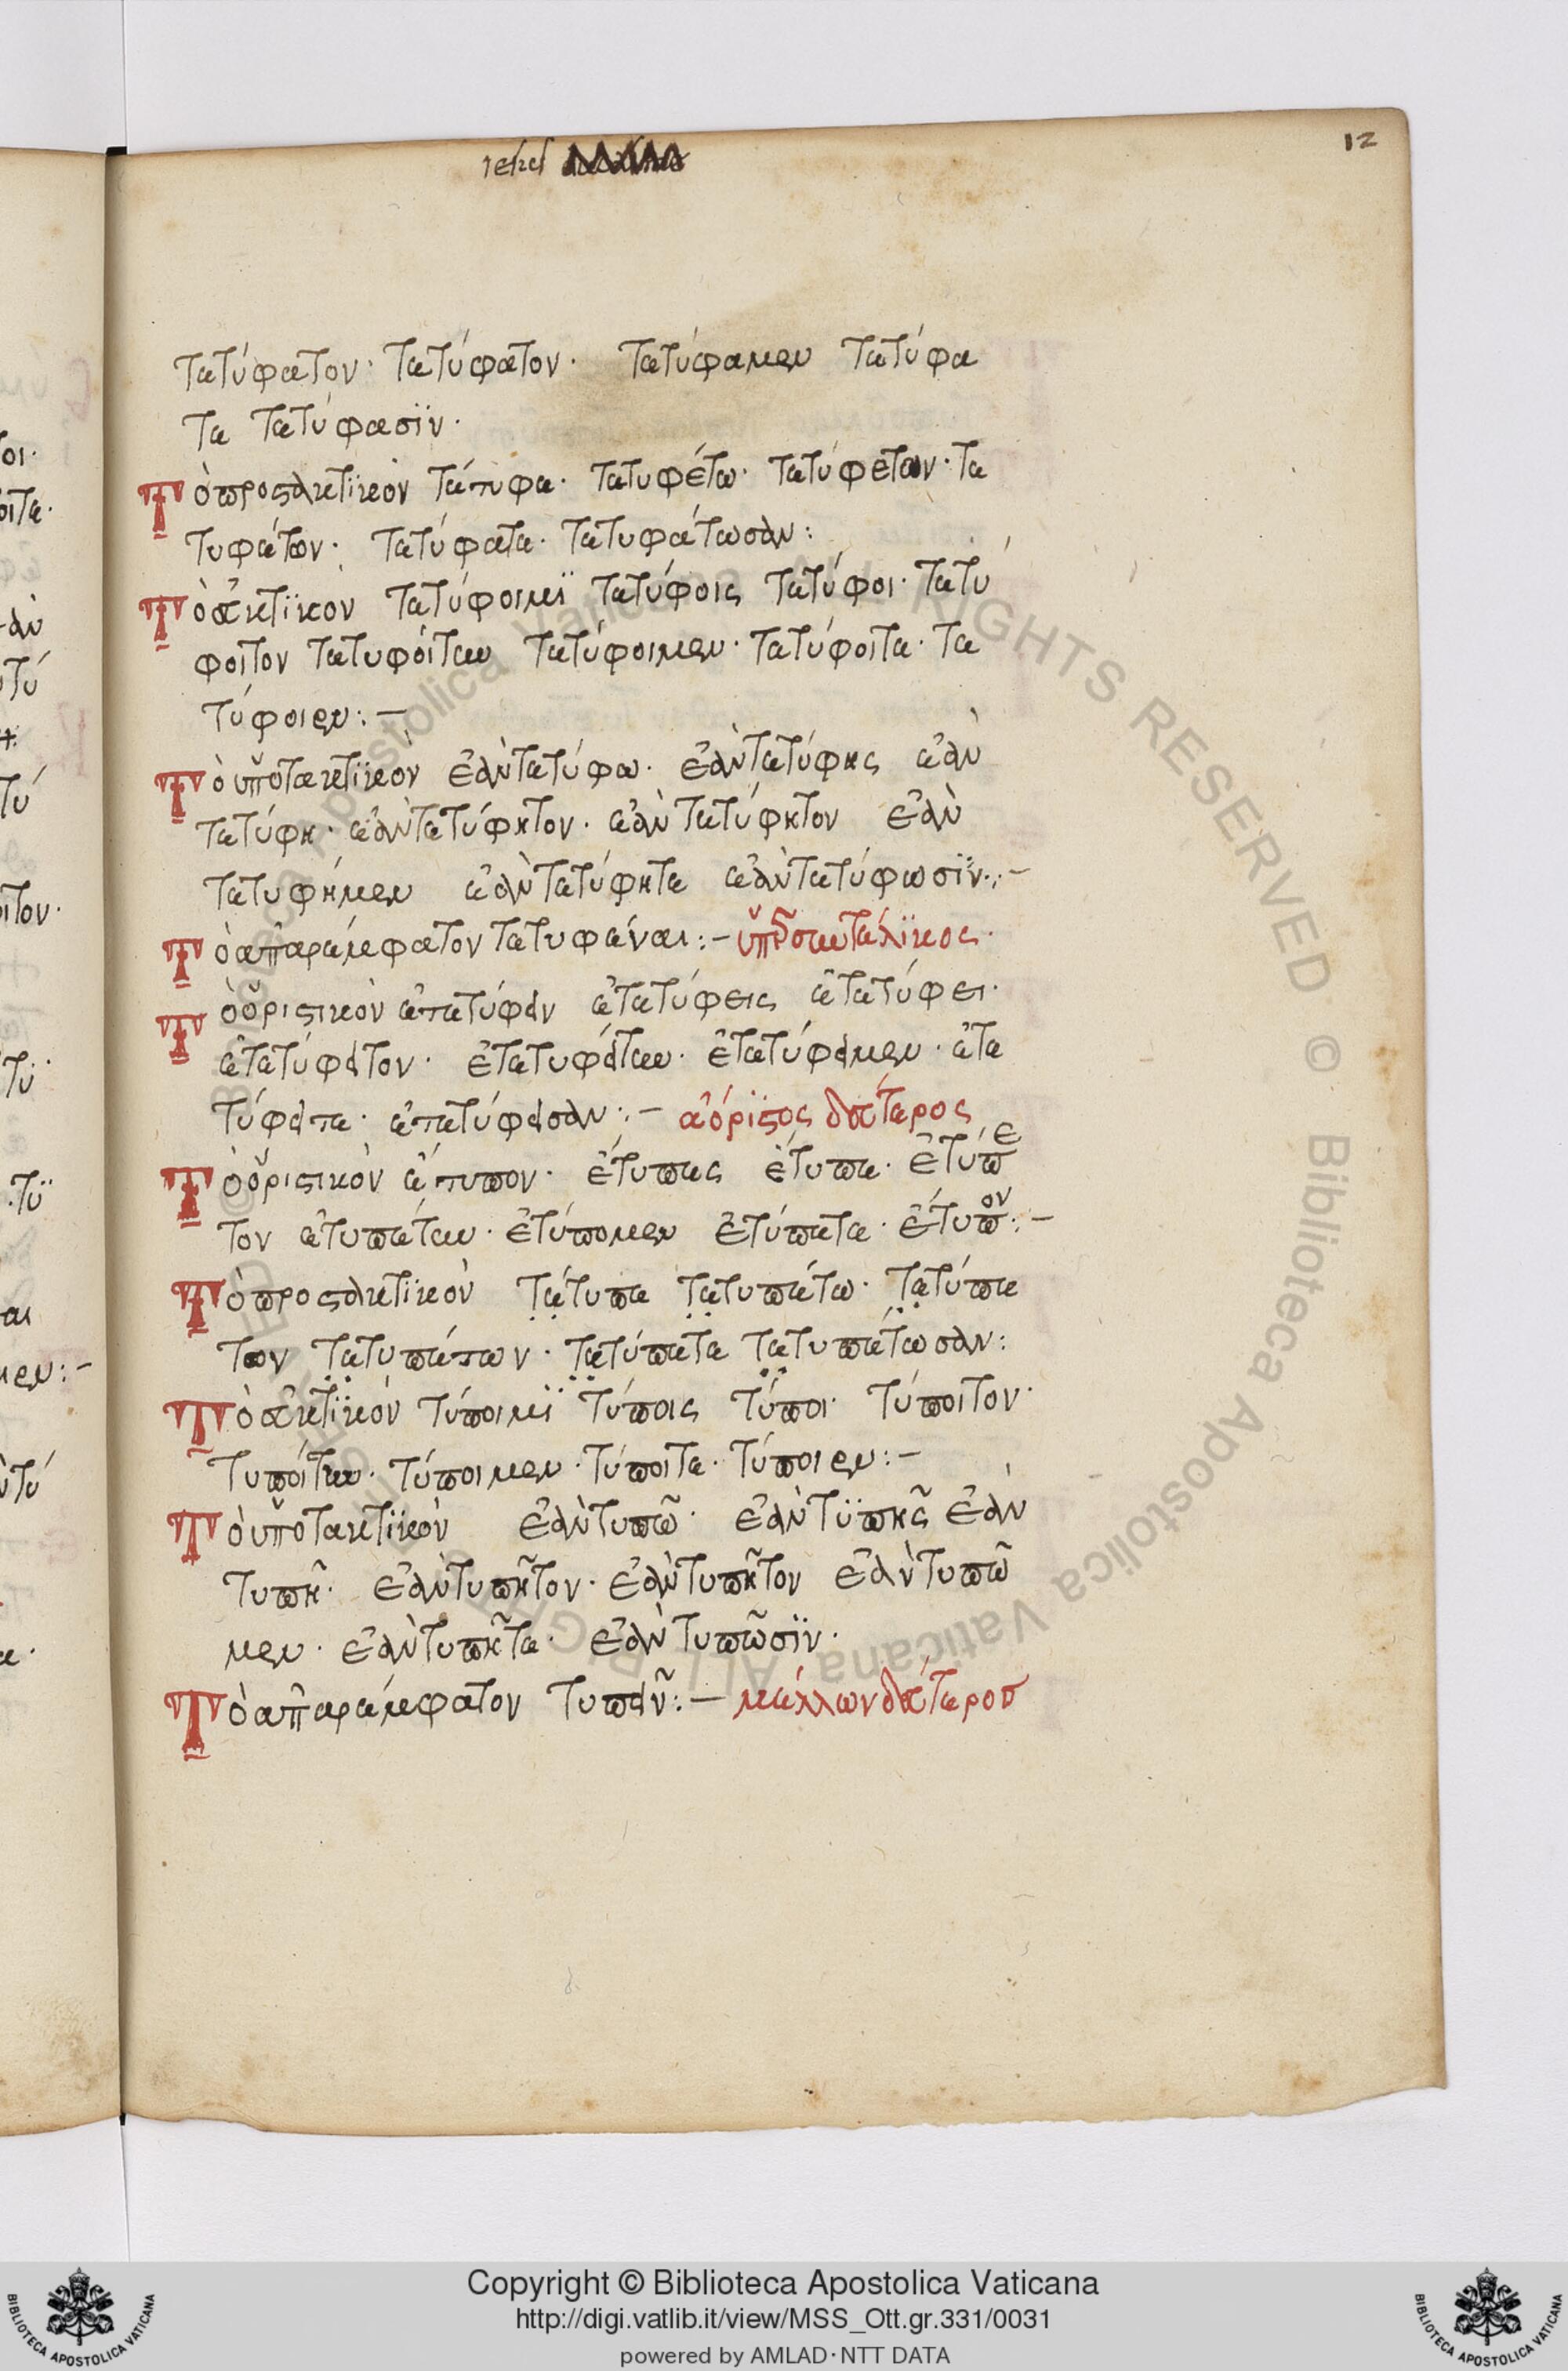 12
τετύφατον· τετύφατον· τετύφαμεν τετύφα
τε τετύφασϊν·
Τὸ προστακτϊκὸν τέτυφε· τετυφέτω· τετύφετον· τε
τυφέτων· τετύφετε· τετυφέτωσαν:
Τὸ εὐκτϊκὸν τετύφοιμϊ τετύφοις τετύφοι· τετύ
φοιτον τετυφοίτην τετύφοιμεν· τετύφοιτε· τε
τύφοιεν:—
Τὸ ὑποτακτϊκὸν ἐὰν τετύφω· ἐὰν τετύφης ἐὰν
τετύφη· ἐὰν τετύφητον· ἐὰν τετύφητον ἐὰν
τετυφήμεν ἐὰν τετύφητε ἐὰν τετύφωσϊν:—
Τὸ ἀπαρέμφατον τετυφέναι:— ὑπερσυντέλϊκος·
Τὸ ὁριστικὸν ἐτετύφειν ἐτετύφεις ἐτετύφει·
ἐτετύφειτον· ἐτετυφείτην· ἐτετύφειμεν· ἐτε
τύφειτε· ἐτετύφεισαν:— ἀόρϊστος δεύτερος
Τὸ ὁριστικὸν ἔτυπον· ἔτυπες ἔτυπε· ἐτύπε
τον ἐτυπέτην· ἐτύπομεν ἐτύπετε· ἔτυπον:—
Τὸ προστακτϊκὸν τέτυπε τετυπέτω· τετύπε
τον τετυπέτων· τετύπετε τετυπέτωσαν:
Τὸ εὐκτϊκὸν τύποιμϊ τύποις τύποι· τύποιτον·
τυποίτην· τύποιμεν· τύποιτε· τύποιεν:—
Τὸ ὑποτακτϊκὸν ἐὰν τυπῶ· ἐὰν τϋπῆς ἐὰν
τυπῆ· ἐὰν τυπῆτον· ἐὰν τυπῆτον ἐὰν τυπῶ
μεν· ἐὰν τυπῆτε· ἐὰν τυπῶσϊν·
Τὸ ἀπαρέμφατον τυπεῖν:— μέλλων δεύτεροσ
Copyright © Biblioteca Apostolica Vaticana
http://digi.vatlib.it/view/MSS_Ott.gr.331/0031
powered by AMLAD·NTT DATA